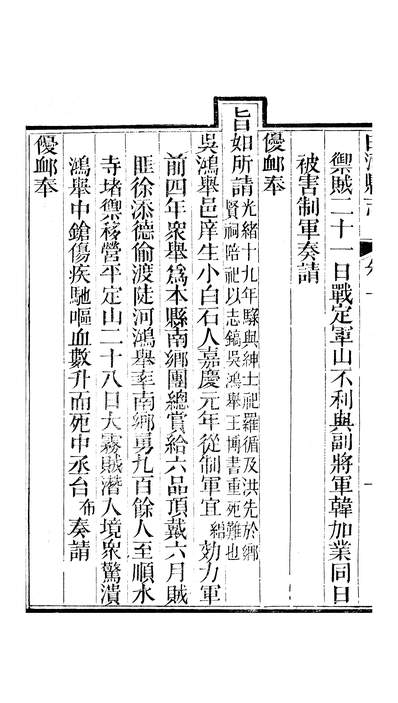 禦賊二十一日戰定軍山不利與副將軍韓加業同日
被害制軍奏請
優衈奉
旨如所請光緒十九年縣與紳士祀羅循及洪先於鄉
賢祠陪祀以志鎬吳鴻舉王博書重死難也
吳鴻舉邑庠生小白石人嘉慶元年從制軍宜綿効力軍
前四年衆舉爲本縣南鄉團總賞給六品頂戴六月賊
匪徐添德偷渡陡河鴻舉率南鄉勇九百餘人至順水
寺堵禦移營平定山二十八日大霧賊潛入境衆驚潰
鴻舉中鎗傷疾馳嘔血數升而死中丞台布奏請
優衈奉